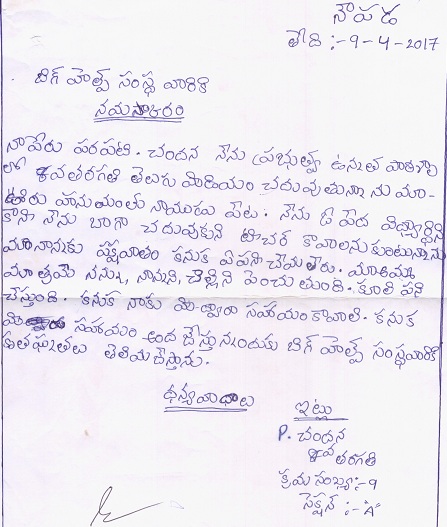 నౌపడ
తేది :- 9-4-2017
బిగ్ హెల్ప్ సంస్థ వారికి
నమస్కారం
నాపేరు పరపటి. చందన నేను ప్రభుత్వ ఉన్నత పాఠశాల
లో 8వతరగతి తెలుగు మీడియం చదువుతున్నాను మా-
ఊరు హనుమంతు నాయుడు పేట. నేను ఓ పేద విద్యార్థిని
కానీ నేను బాగా చదువుకుని టీచర్ కావాలనుకుంటున్నాను
మానాన్నకు పక్షవాతం కనుక ఏపని చేయలేరు. మాఅమ్మ
మాత్రమే నన్ను, నాన్నని, చెల్లిని పెంచుతుంది. కూలి పని
చేస్తుంది. కనుక నాకు మీ ద్వారా సహాయం కావాలి. కనుక
మీ సహాయం అంద చేస్తున్నందుకు బిగ్ హెల్ప్ సంస్థవారికి
కృతఘ్నతలు తెలియచేస్తాను.
ధన్యవాదాలు
ఇట్లు
P. చందన
8వ తరగతి
క్రమ సంఖ్య:-9
సెక్షన్ :-"A"